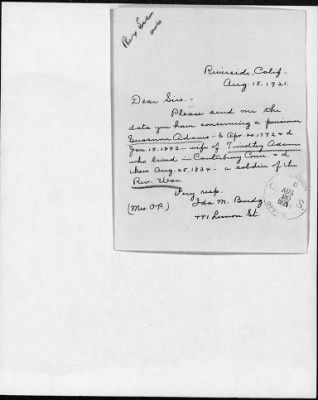 Rev. War
Riverside, Calif.
Aug. 15, 1921.
Dear Sirs:-
Please send me the
data you have concerning a pensioner
Susanna Adams - b Apr. 20, 1792 & d
Jan. 15, 1892 - wife of Timothy Adams
who lived in Canterbury Conn. & d
there Aug. 25, 1834 - a soldier of the
Rev. War.
Very resp.
(Mrs. O.P.) Ida M.
491 Lemon St.
AUG
20
1921